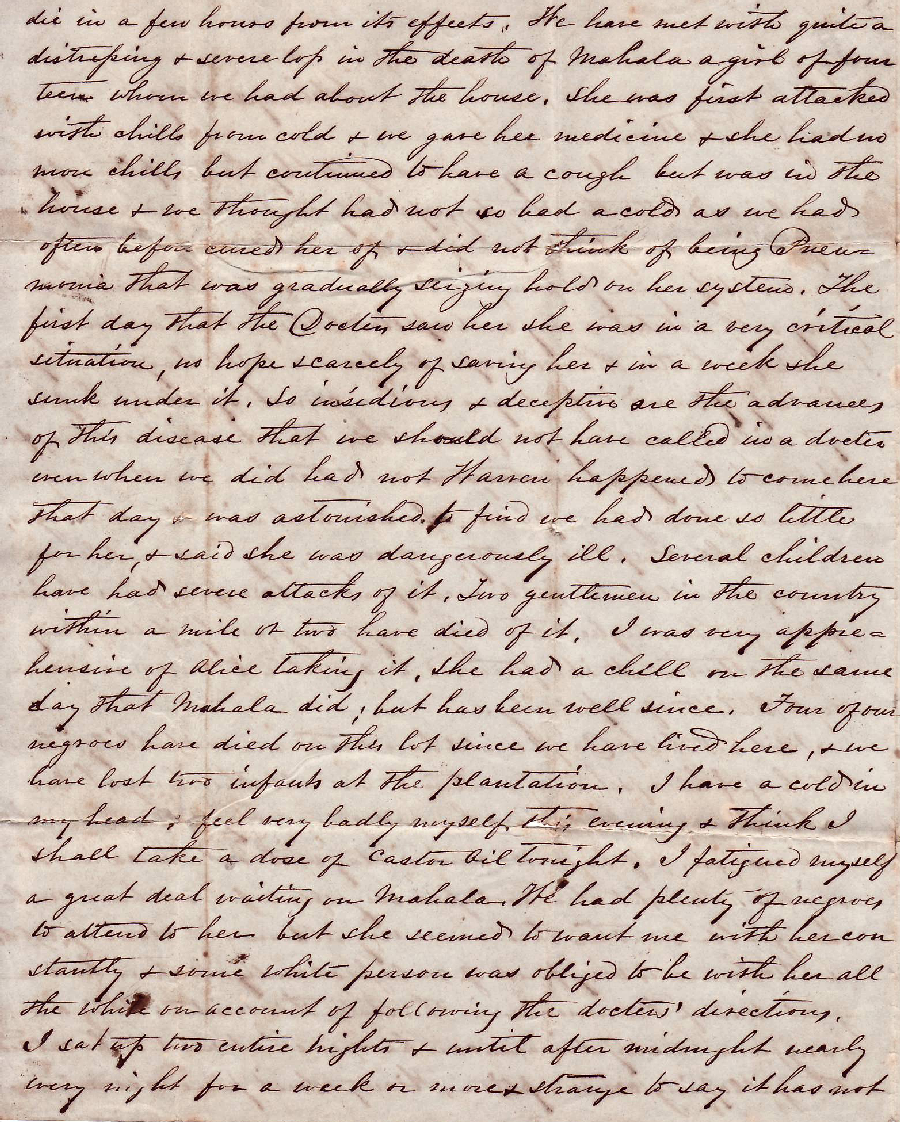 die in a few hours from its effects. We have met with quite a
distressing & severe loss in the death of Mahala a girl of four
teen whom we had about the house. She was first attacked
with chills from cold & we gave her medicine & she had no
more chills but continued to have a cough but was in the
house & we thought had not so bad a cold as we had
often before cured her of & did not think of being Pneu=
monia that was gradually seizing hold on her system. The
first day that the Doctor saw her she was in a very critical
situation, no hope scarcely of saving her & in a week she
sunk under it. So insidious & deceptive are the advances
of this disease that we should not have called in a doctor
even when we did had not Warren happened to come here
that day & was astonished to find we had done so little
for her, & said she was dangerously ill. Several children
have had severe attacks of it. Two gentlemen in the country
within a mile or two have died of it. I was very appre=
hensive of Alice taking it, she had a chill on the same
day that Mahala did; but has been well since. Four of our
negroes have died on this lot since we have lived here, & we
have lost two infants at the plantation. I have a cold in
my head; feel very badly myself this evening & think I
shall take a dose of Castor Oil tonight. I fatigued myself
a great deal waiting on Mahala. We had plenty of negroes
to attend to her but she seemed to want me with her con
stantly & some white person was obliged to be with her all
the while on account of following the doctors' directions.
I sat up two entire nights & until after midnight nearly
every night for a week or more & strange to say it has not